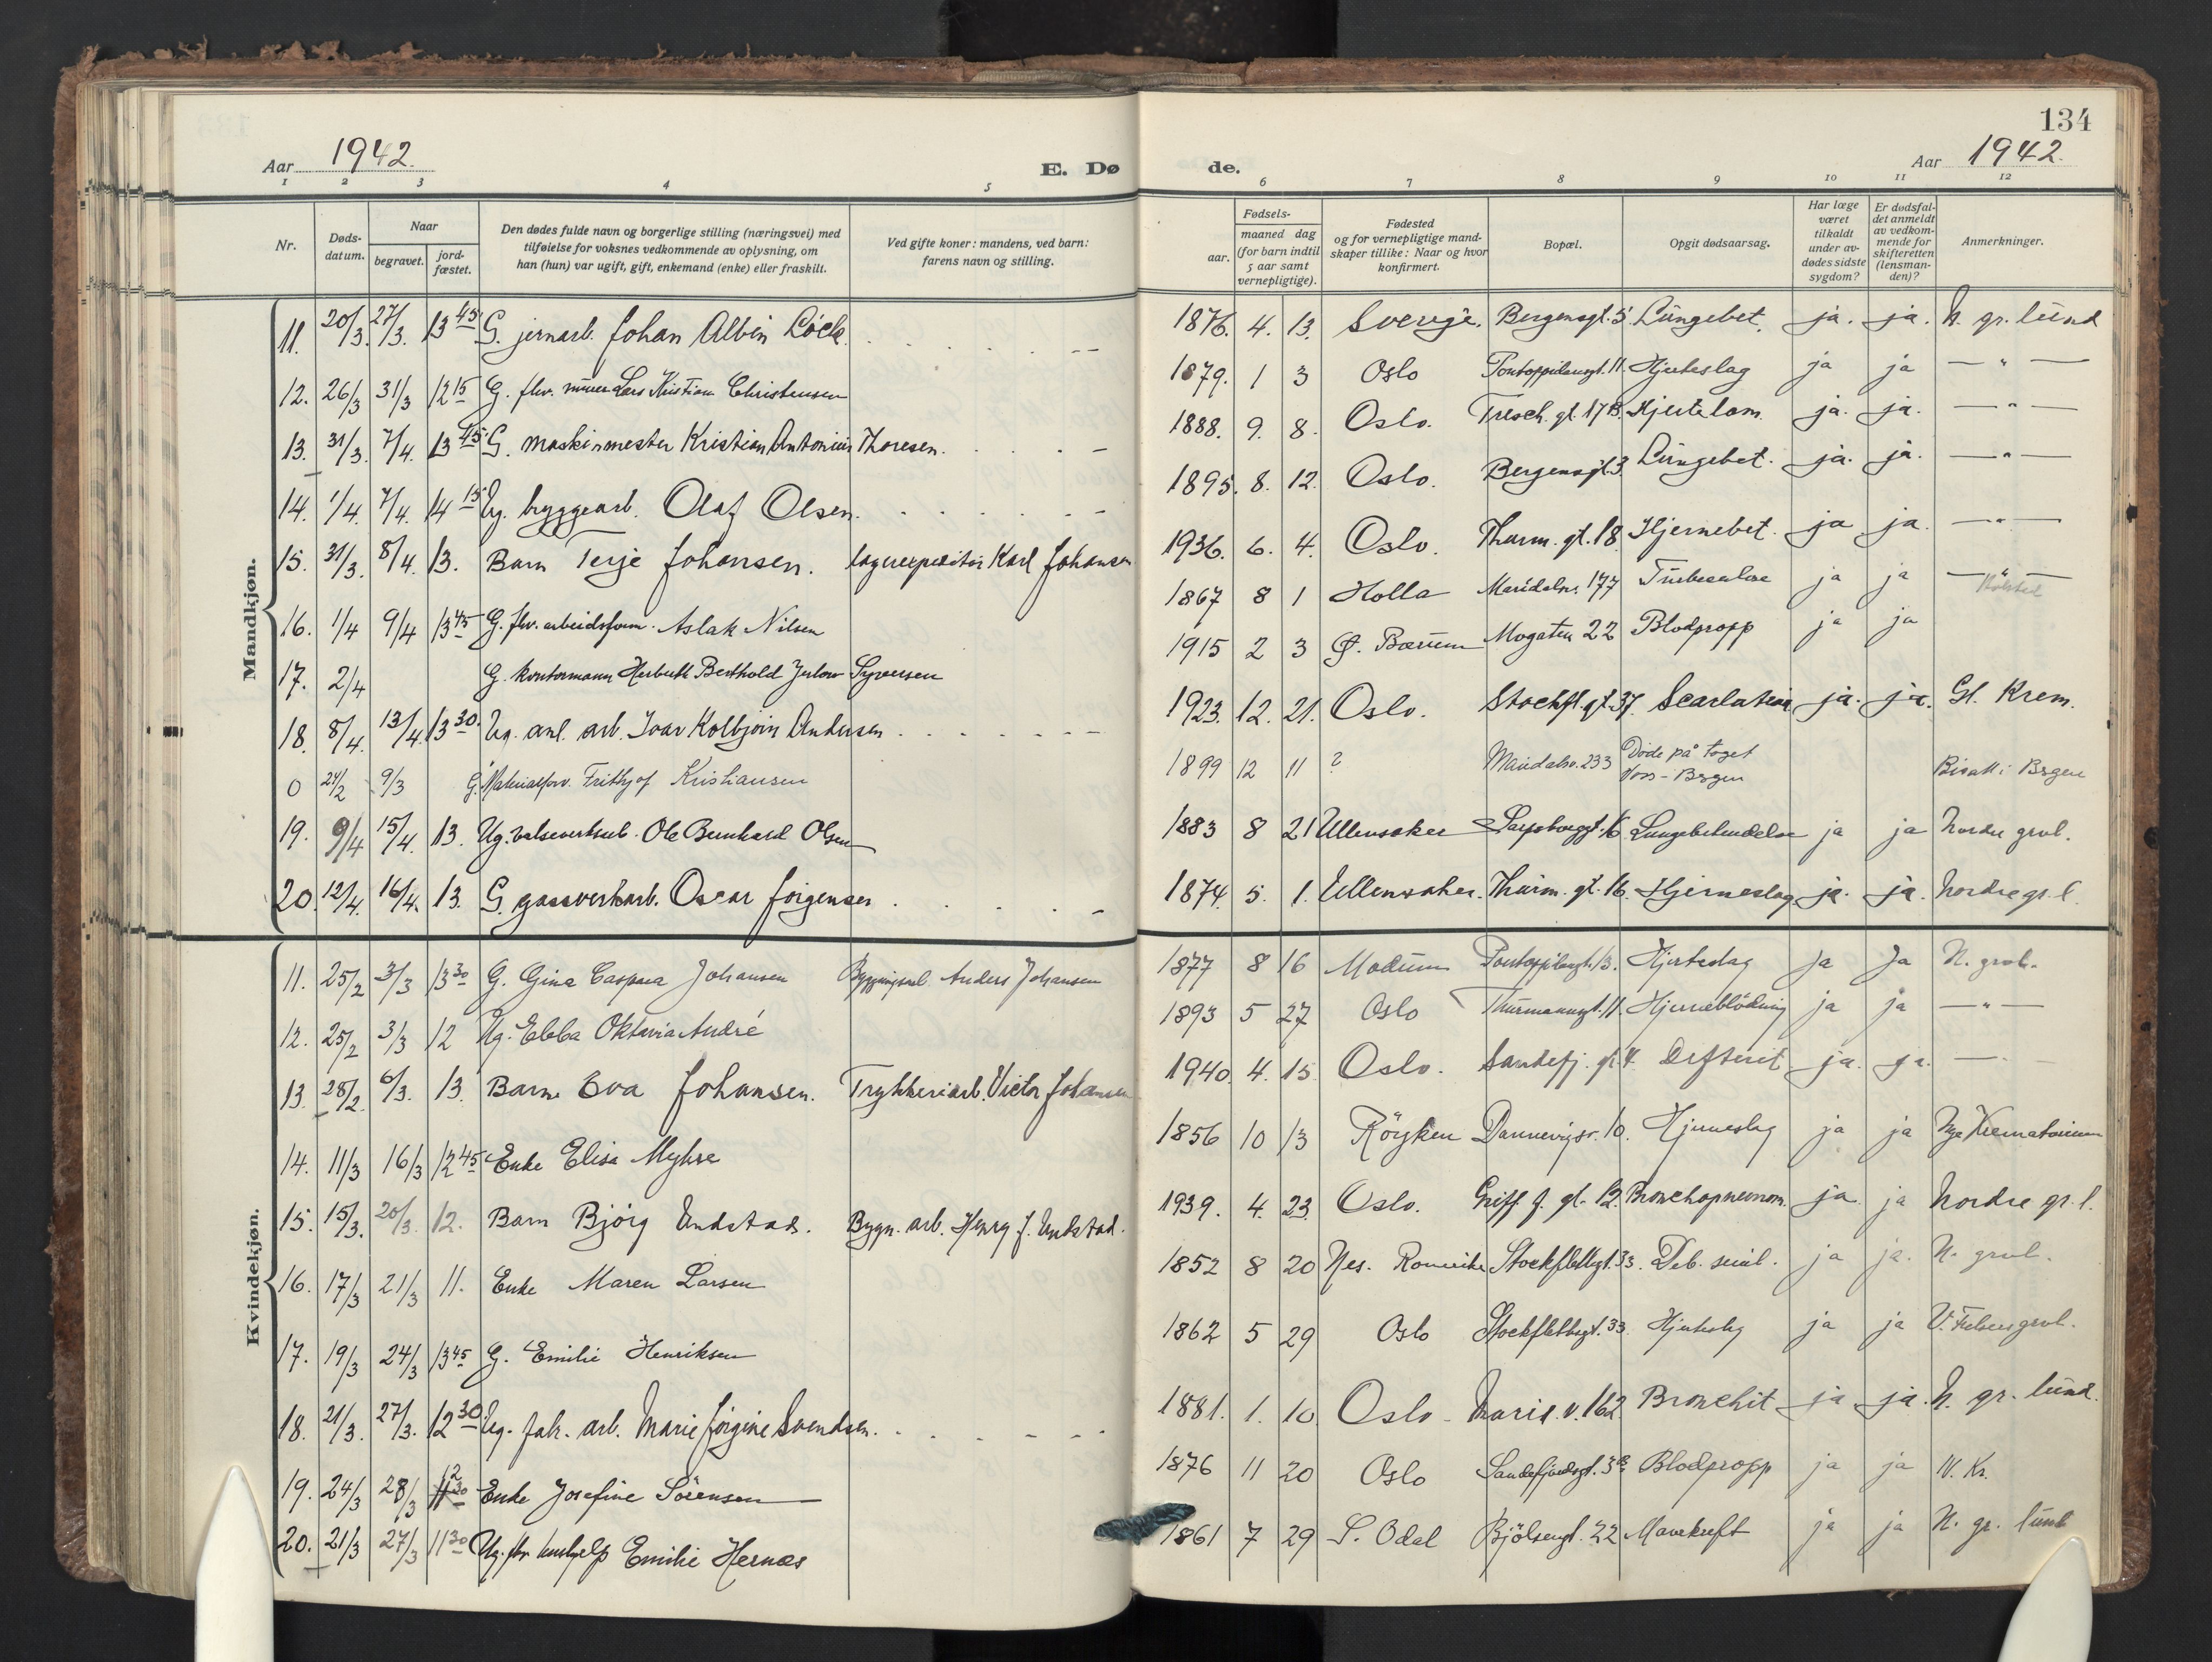 134
Aar 1942.
E. Dø
de.
Aar 1942.
1 2 3 4 5 6 7 8 9 10 11 12
Nr.
Døds-
datum.
Naar
begravet.
jord-
fæstet.
Den dødes fulde navn og borgerlige stilling (næringsvei) med
tilføielse for voksnes vedkommende av oplysning, om
han (hun) var ugift, gift, enkemand (enke) eller fraskilt.
Ved gifte koner: mandens, ved barn:
farens navn og stilling.
Fødsels-
aar.
maaned dag
(for barn indtil
5 aar samt
vernepligtige).
Fødested
og for vernepligtige mand-
skaper tillike: Naar og hvor
konfirmert.
Bopæl.
Opgit dødsaarsag.
Har læge
været
tilkaldt
under av-
dødes sidste
sygdom?
Er dødsfal-
det anmeldt
av vedkom-
mende for
skifteretten
(lensman-
den)?
Anmerkninger.
Mandkjøn.
11. 20/3. 27/3. 13 45 G. jernarb. Johan Albin Löck. 1876. 4. 13. Sverige. Bergensgt. 5 Lungebet. ja. ja. N. gr. lund
12. 26/3 31/3 12 15 G. fhv. murer Lars Kristian Christensen 1879. 1 3 Oslo Pontoppidansgt. 11. Hjerteslag ja ja — " —
13. 31/3. 7/4. 13 45 G. maskinmester Kristian Antonius Thoresen. 1888. 9. 8. Oslo. Tresch. gt. 17 B. Hjertelam. ja. ja. — " —
14. 1/4. 7/4. 14 15 Ug. byggearb. Olaf Olsen. 1895. 8. 12. Oslo. Bergensgt. 3 Lungebet. ja. ja. — " —
15. 31/3. 8/4. 13. Barn Terje Johansen. lagerexpeditör Karl Johansen 1936. 6. 4. Oslo. Thurm. gt. 18. Hjernebet. ja ja. — " —
16. 1/4 9/4 13 45 G. fhv. arbeidsform. Aslak Nilsen 1867 8 1 Holla Maridalsv. 177 Tuberculose ja ja
17. 2/4 G. kontormann Herbert Berthold Syversen 1915 2 3 Ø. Bærum Mogaten 22 Blodpropp ja ja
18. 8/4. 13/4. 13 30. Ug. anl. arb. Ivar Kolbjörn Andersen 1923. 12. 21. Oslo. Stockfl. gt. 37. Scarlatina ja. ja. Gl. Krem.
0 24/2 9/3 G. Materialforv. Frithjof Kristiansen 1899 12 11 ? Maridalsv. 233 Döde på toget
Voss - Bergen Bisatt i Bergen
19. 9/4 15/4. 13. Ug. valseverksarb. Ole Bernhard Olsen 1883 8 21 Ullensaker Sarpsborggt. 16 Lungebetendelse ja ja Nordre gravl.
20. 12/4. 16/4. 13. G. gassverksarb. Oscar Jörgensen 1874. 5. 1. Ullensaker. Thurm. gt. 16. Hjerneslag. ja. ja. Nordre gr. l.
Kvindekjøn.
11. 25/2 3/3 13 30 G. Gina Caspara Johansen Bygningsarb. Anders Johansen 1877 8 16 Modum Pontoppidansgt. 13. Hjerteslag ja ja N. gravl.
12. 25/2 3/3 12 Ug. Ebba Oktavia André 1893 5 27 Oslo Thurmannsgt. 11. Hjerneblödning ja ja — " —
13. 28/2. 6/3. 13. Barn Eva Johansen. Trykkeriarb. Victor Johansen 1940. 4. 15. Oslo. Sandefj. gt. 4. Difterit ja. ja. — " —
14. 11/3 16/3 12 45 Enke Elisa Myhre 1856 10 13 Röyken Dannevigsv. 10. Hjerneslag ja ja Nye Krematorium
15. 15/3. 20/3. 12. Barn Björg Undstad. Bygn. arb. Henry J. Undstad. 1939. 4. 23. Oslo. Griff. f. gt. 12. Bronchopneumon. ja ja Nordre gr. l.
16. 17/3 21/3 11. Enke Maren Larsen 1852 8 20 Nes. Romerike Stockflethsgt. 33. Deb. senil. ja ja. N. gravl.
17. 19/3 24/3 13 45 G. Emilie Henriksen 1862 5 29 Oslo Stockflethsgt. 33. Hjerteslag ja ja V. Frelsers gravl.
18. 21/3. 27/3. 12 30 Ug. fabr. arb. Marie Jörgine Svendsen. 1881. 1. 10. Oslo Marid. v. 162. Bronchit ja ja. N. gr. lund.
19. 24/3 28/3 12 30 Enke Josefine Sörensen 1876 11 20 Oslo Sandefjordsgt. 3 Blodpropp ja ja N. Kr.
20. 21/3 27/3 11 30 Ug. fhv. Emilie Hernæs 1861 7 29 S. Odal Bjölsengt. 22 Mavekreft ja ja N. gr. lund